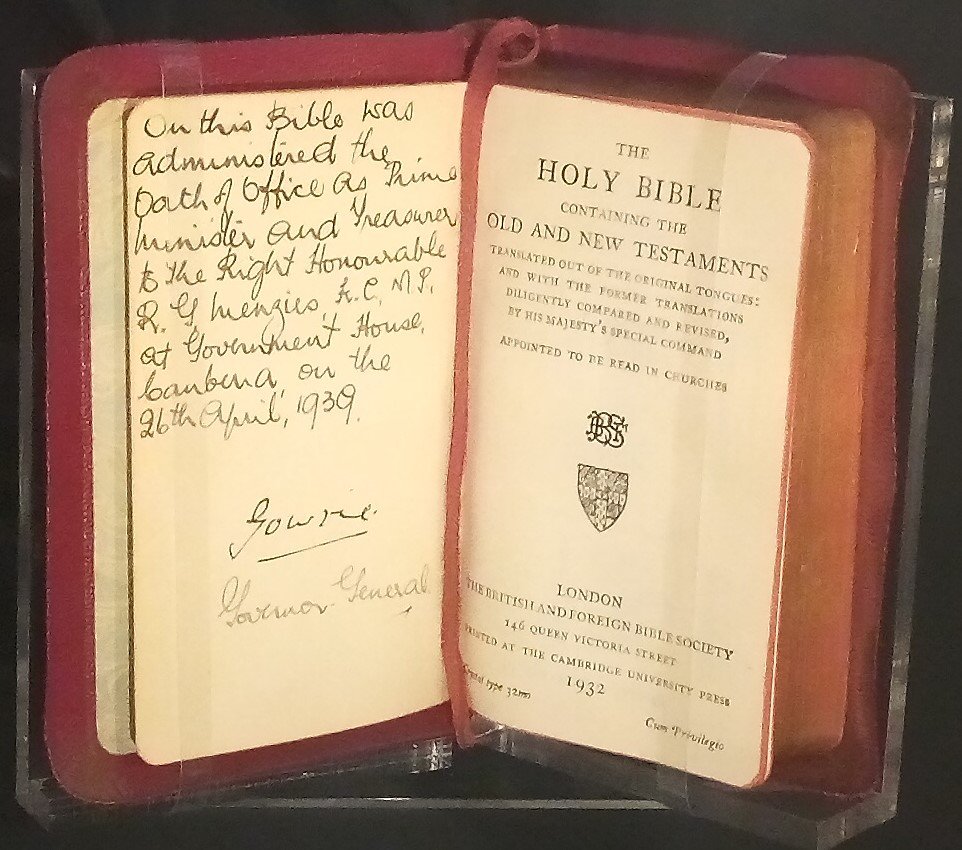 On this Bible was
administered the
Oath of Office as Prime
Minister and Treasurer
to the Right Honourable
R. G. Menzies, K.C., M.P.,
at Government House,
Canberra, on the
26th April, 1939.
Gowrie.
Governor-General
THE
HOLY BIBLE
CONTAINING THE
OLD AND NEW TESTAMENTS
TRANSLATED OUT OF THE ORIGINAL TONGUES:
AND WITH THE FORMER TRANSLATIONS
DILIGENTLY COMPARED AND REVISED,
BY HIS MAJESTY'S SPECIAL COMMAND
APPOINTED TO BE READ IN CHURCHES
LONDON
THE BRITISH AND FOREIGN BIBLE SOCIETY
146 QUEEN VICTORIA STREET
PRINTED AT THE CAMBRIDGE UNIVERSITY PRESS
1932
type 32mo
Cum Privilegio